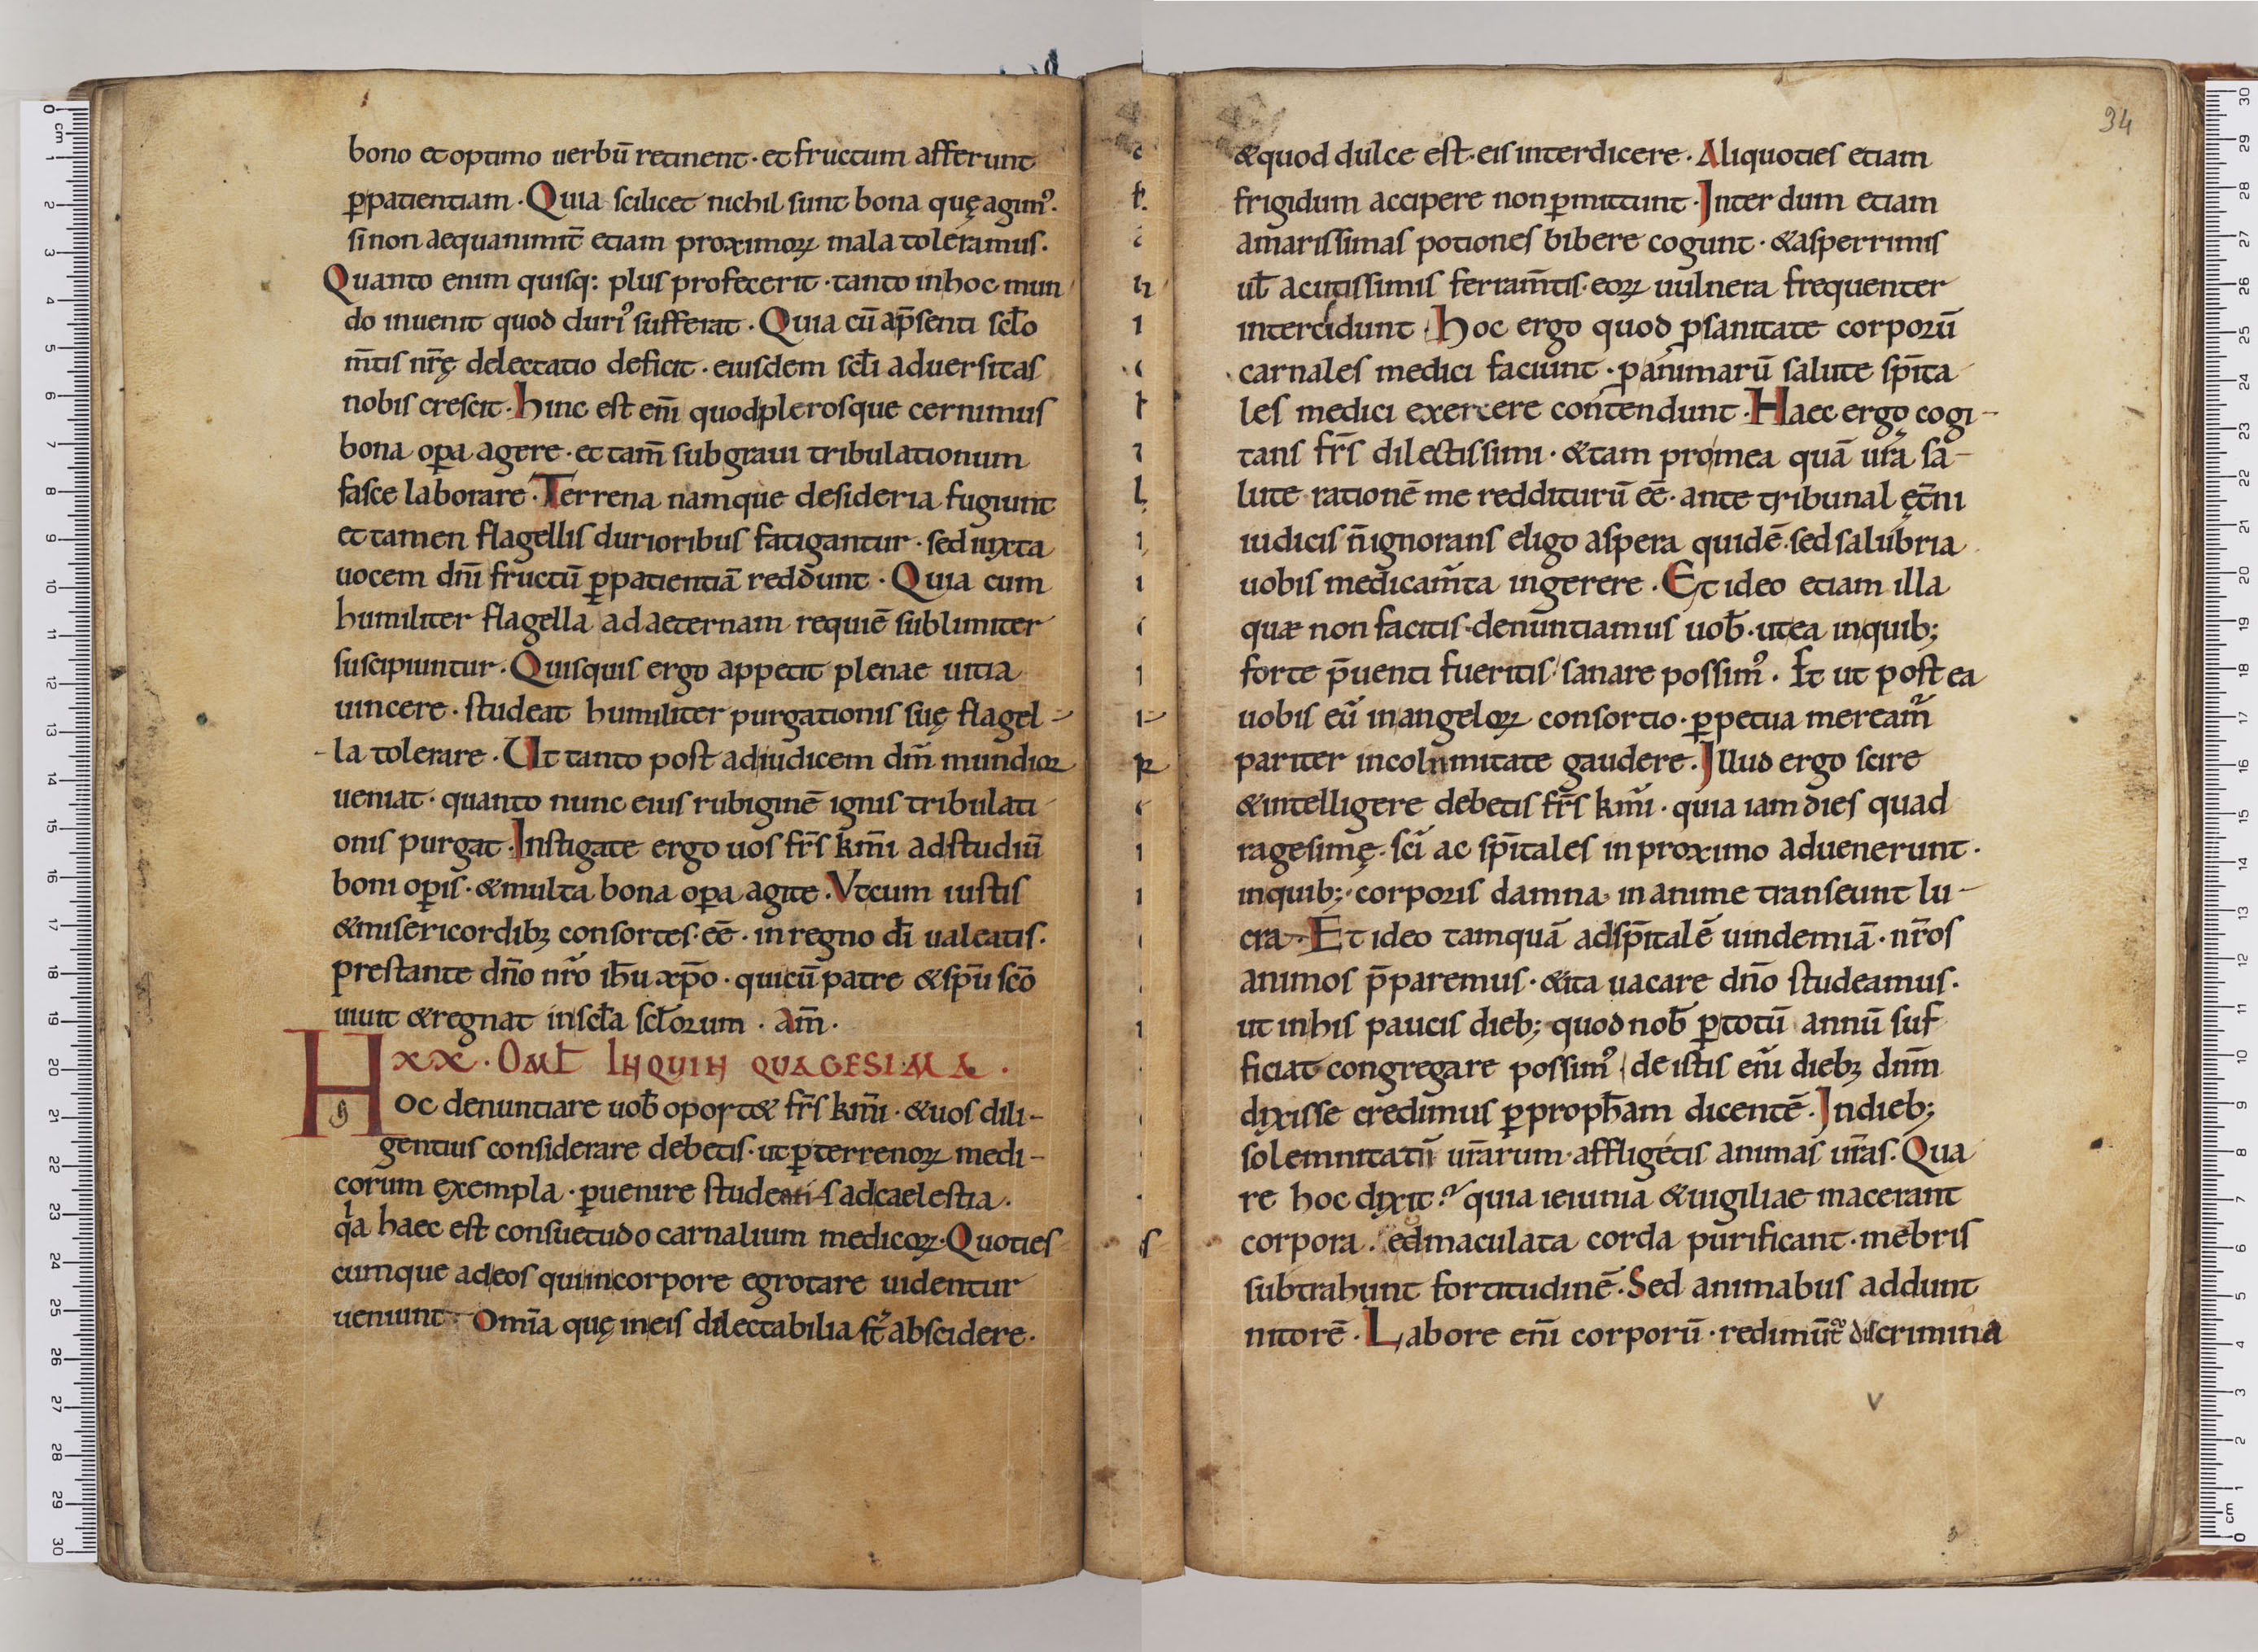 bono et optimo uerbū retinent · et fructum afferunt
ꝑpatientiam · Quia scilicet nichil sunt bona quę agimꝰ.
si non aequanimit̄ etiam proximoꝝ mala toleramus.
Quanto enim quisq: plus profecerit · tanto in hoc mun
do inuenit quod duriꝰ sufferat · Quia cū ap̄senti scl̄o
m̄tis nr̄ę delectatio deficit · eiusdem scl̄i aduersitas
nobis crescit · hinc est eni̅ quod plerosque cernimus
bona oꝑa agere · et tam̄ sub graui tribulationum
fasce laborare · Terrena namque desideria fugiunt
et tamen flagellis durioribus fatigantur · sed iuxta
uocem dni̅ fructū ꝑpatientiā reddunt · Quia cum
humiliter flagella ad aeternam requiē sublimiter
suscipiuntur · Quisquis ergo appetit plenae uitia
uincere · studeat humiliter purgationis suę flagel-
-la tolerare · Ut tanto post ad iudicem dm̄ mundioꝝ
ueniat · quanto nunc eius rubiginē ignis tribulati
onis purgat · Instigate ergo uos fr̄s km̄i ad studiū
boni oꝑis · & multa bona oꝑa agite · Vt cum iustis
& misericordibꝫ consortes · eē · in regno di̅ ualeatis.
prestante dn̄o nr̄o ih̄u xp̄o · qui cū patre & sp̄u sc̄o
uiuit & regnat in scl̄a scl̄orum · am̄ ·
XX · OML̄ IN QUINQUAGESIMA ·
Hoc denuntiare uob̄ oport& fr̄s km̄i · & uos dili-
gentius considerare debetis · ut ꝑ terrenoꝝ medi-
corum exempla · ꝑuenire studeatis ad caelestia ·
qͥa haec est consuetudo carnalium medicoꝝ · Quoties
cumque ad eos qui in corpore egrotare uidentur
ueniunt · Omīa quę in eis dilectabilia st̄ abscidere ·
34
& quod dulce est · eis interdicere · Aliquoties etiam
frigidum accipere non ꝑmittunt · Interdum etiam
amarissimas potiones bibere cogunt · & asperrimis
ul̄ acutissimis ferram̄tis · eoꝝ uulnera frequenter
intercidunt · hoc ergo quod ꝓ sanitate corporū
carnales medici faciunt · ꝓ animarū salute sp̄ita
les medici exercere contendunt · Haec ergo cogi-
tans fr̄s dilectissimi · & tam pro mea quā ur̄a sa-
lute rationē me redditurū eē · ante tribunal ęt̄ni
iudicis n̄ ignorans eligo aspera quidē · sed salubria
uobis medicam̄ta ingerere · Et ideo etiam illa
quæ non facitis · denuntiamus uob̄ · ut ea in quib;
forte p̄uenti fueritis · sanare possimꝰ · Et ut post ea
uobis cū in angeloꝝ consortio · ꝑpetua mereamr̄
pariter incolumitate gaudere · Illud ergo scire
& intelligere debetis fr̄s km̄i · quia iam dies quad
ragesimę · sc̄i ac sp̄itales in proximo aduenerunt ·
in quib; · corporis damna in anime transeunt lu-
cra · Et ideo tamquā ad sp̄italē uindemiā · nr̄os
animos p̄paremus · & ita uacare dn̄o studeamus ·
ut in his paucis dieb; quod nob̄ ꝑ totū annū suf
ficiat congregare possimꝰ · de istis eni̅ diebꝫ dnm̄
dixisse credimus ꝑ proph̄am dicentē · In dieb;
solemnitatū ur̄arum · affligetis animas ur̄as · Qua
re hoc dixit? quia ieiunia & uigiliae macerant
corpora · sed maculata corda purificant · mēbris
subtrahunt fortitudinē · Sed animabus addunt
nitorē · Labore eni̅ corporū · redimūt̉ discrimina
v